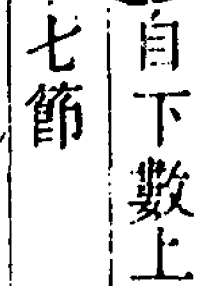 自下數上
七節